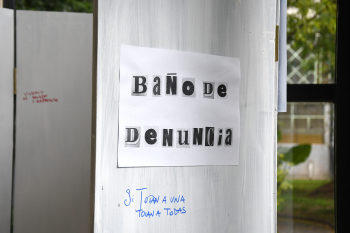 BAÑO DE
DENUNCIA
Si TOCAN A UNA
TOCAN A TODAS